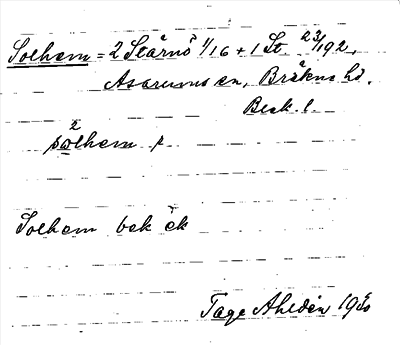 Solhem = 2 Stärnö 1/16 + 1 St. 23/192,
Asarums sn, Bräkne hd.
Blek. l.
solhem
Solhem bek ek
Tage Ahldén 19